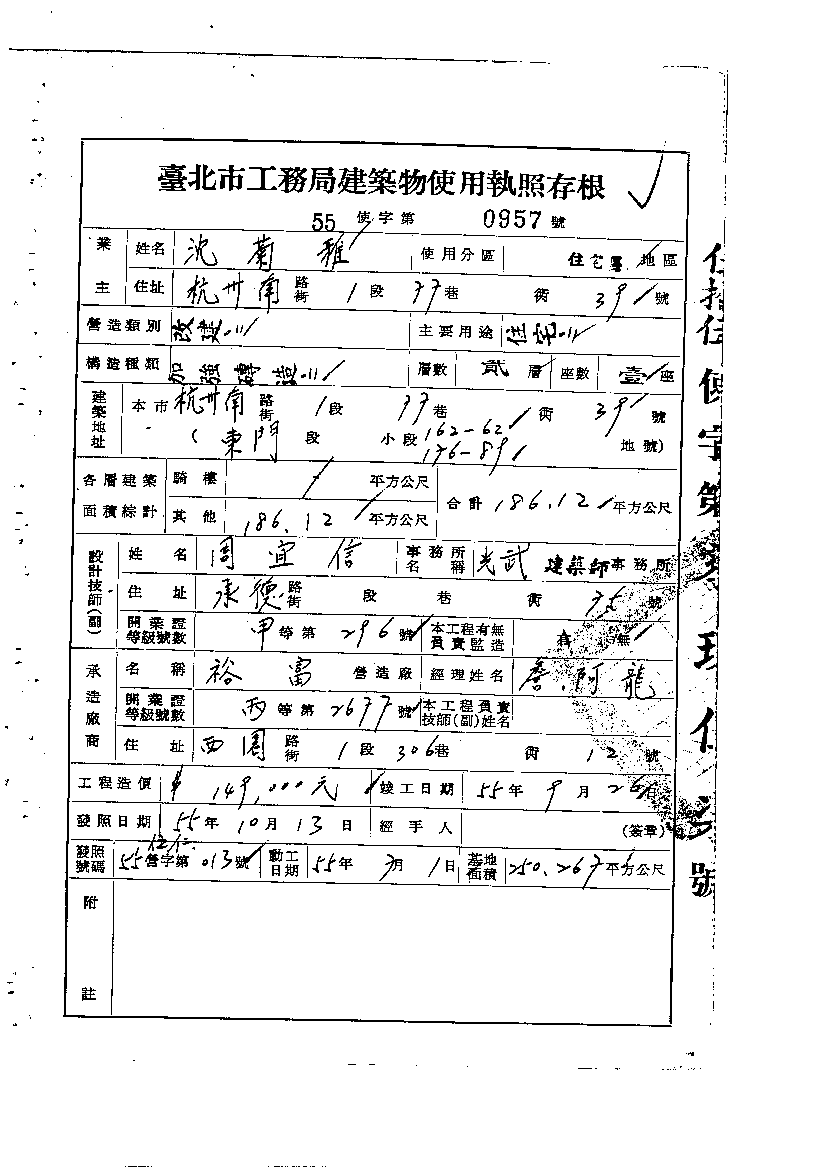 臺北市工務局建築物使用執照存根
55 使字第 0957 號
業主 姓名 沈菊稚 使用分區 住宅區 地區
住址 杭州南 路街 1 段 77 巷 衖 39 號
營造類別 改建 主要用途 住宅
構造種類 加強磚造 層數 貳 層 座數 壹 座
建築地址 本市 杭州南 路街 1 段 77 巷 衖 39 號
( 東門 段 小段 162-62 176-89 地號)
各層建築面積綜計 騎樓 / 平方公尺 合計 186.12 平方公尺
其他 186.12 平方公尺
設計技師(副) 姓名 周宜信 事務所名稱 光武 建築師事務所
住址 承德 路街 段 巷 衖 75 號
開業證等級號數 甲 等第 296 號 本工程有無負責監造 有 無
承造廠商 名稱 裕富 營造廠 經理姓名 詹阿龍
開業證等級號數 丙 等第 2677 號 本工程負責技師(副)姓名
住址 西園 路街 1 段 306 巷 衖 12 號
工程造價 $149,000元 竣工日期 55 年 9 月 26 日
發照日期 55 年 10 月 13 日 經手人 (簽章)
發照號碼 55 營字第 013 號 動工日期 55 年 7 月 1 日 基地面積 250.267 平方公尺
附註
使字第
號